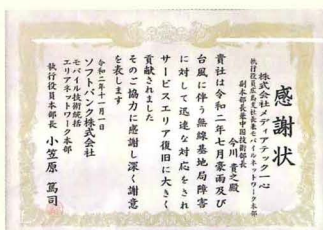 感謝状
株式会社メディアテック一心
執行役員東北支社長兼モバイルネットワーク本部
副本部長兼中国技術部長
今川 貴之殿
貴社は令和二年七月豪雨及び
台風に伴う無線基地局障害
に対して迅速な対応をされ
サービスエリア復旧に大きく
貢献されました
そのご協力に感謝し深く謝意
を表します
令和二年十一月一日
ソフトバンク株式会社
モバイル技術統括
エリアネットワーク本部
執行役員本部長 小笠原 篤司